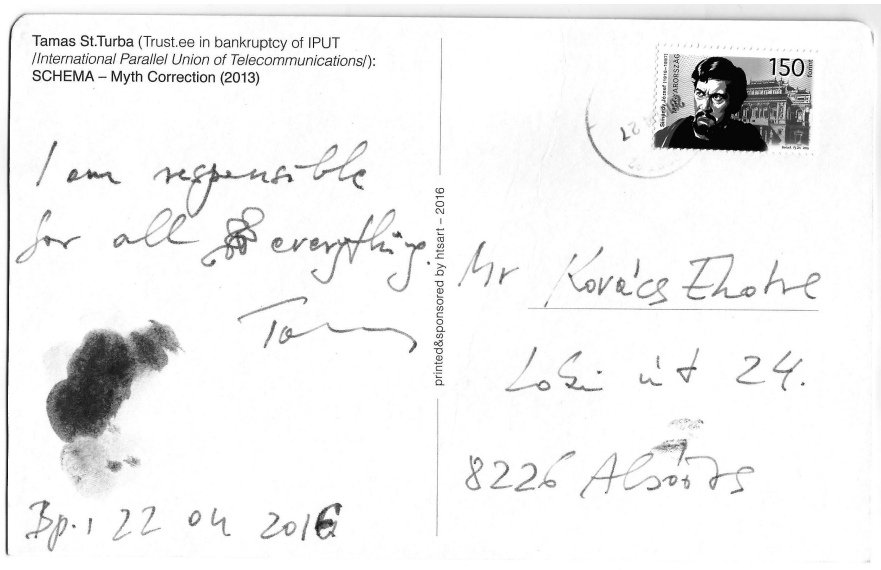 Tamas St.Turba (Trust.ee in bankruptcy of IPUT
/International Parallel Union of Telecommunications/):
SCHEMA – Myth Correction (2013)
I am responsible
for all everything.
Bp., 22 04 2016
printed&sponsored by htsart – 2016
150
forint
MAGYARORSZÁG
27
Mr Kovács
út 24.
8226 Alsóörs